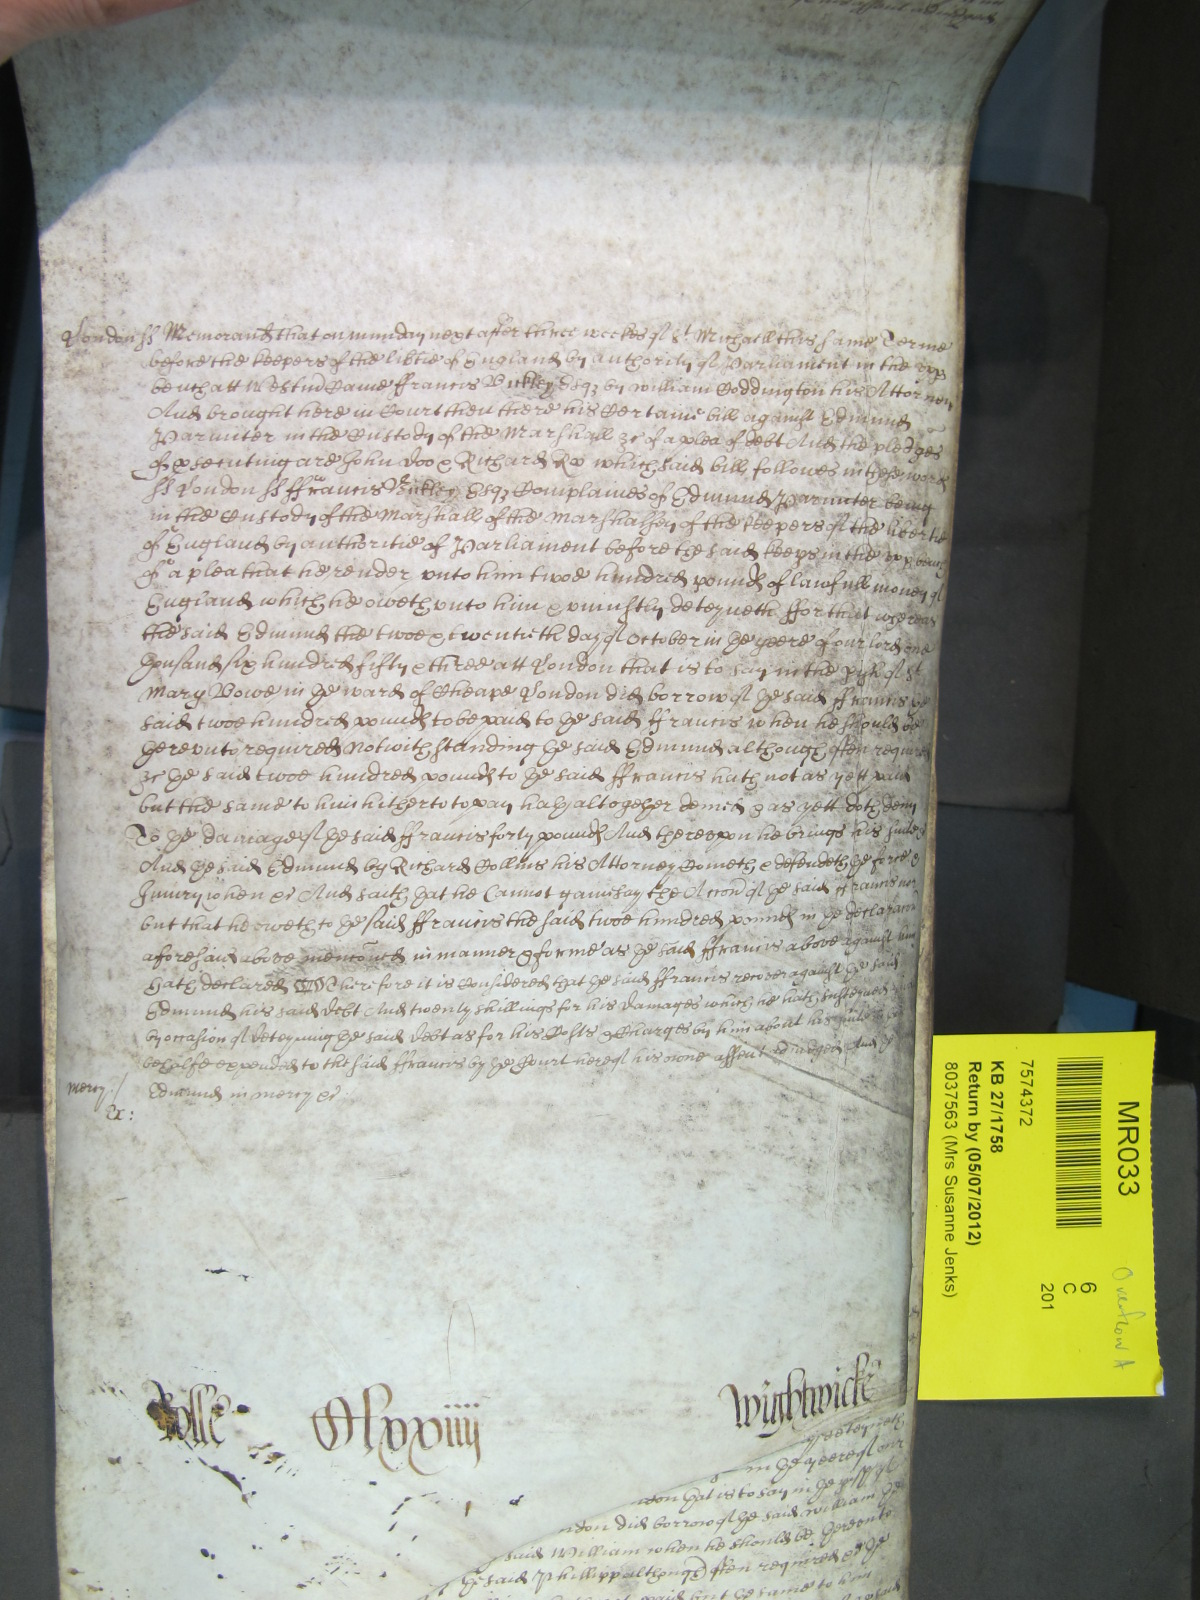 London ss Memorand that on munday next after three weekes of St Michaell this same Terme
before the keepers of the libtie of England by authority of Parliament in the upp
bench att Westm Came ffrancis Buckley Esq by William Coddington his Attorney
And brought here in Court then there his Certaine bill against Edmund
Parmiter in the Custody of the Marshall &c of a plea of debt And the pledges
of psecuting are John Doo & Richard Roo which said bill followes in these words
ss London ss ffrancis Buckley Esq Complaines of Edmund Parmiter being
in the Custody of the Marshall of the Marshalsey of the keepers of the libertie
of England by authoritie of Parliament before the said keeps in the upp bench
of a plea that he render unto him twoe hundred pound of lawfull money of
England which he oweth unto him & uniustly deteyneth ffor that whereas
the said Edmund the twoe & twentieth day of October in ye yeere of our lord one
thousand six hundred fifty & three att London that is to say in the pish of St
Mary Bowe in ye ward of Cheape London did borrow of ye said ffrancis ye
said twoe hundred pound to be paid to ye said ffrancis when he should be
thereunto required Notwithstanding ye said Edmund although often required
&c ye said twoe hundred pound to ye said ffrancis hath not as yett paid
but the same to him hitherto to pay hath altogether denied & as yett doth deny
To ye damage of ye said ffrancis forty pound And thereupon he brings his suite &c
And ye said Edmund by Richard Collins his Attorney Cometh & defendeth ye force &
Iniury when &c And saith that he Cannot gainesay the Accon of ye said ffrancis nor
but that he oweth to ye said ffrancis the said twoe hundred pound in ye declaracon
aforesaid above menconed in manner & forme as ye said ffrancis above against him
hath declared Therefore it is Considered that ye said ffrancis recover against ye said
Edmund his said debt And twenty shillings for his damages which he hath susteyned
by occasion of deteyning ye said debt as for his Costs & Charges by him about his suite in
behalfe expended to the said ffrancis by ye Court here of his owne assent adiudged And ye
mercy / Edmund in mercy &c
Ex:
Rolle Clxxiiij Wightwicke
deteyneth
in ye yeere of our
London that is to say in ye pish of
London did borrow of ye said William ye
said William when he should be thereunto
ye said Phillipp although often required &c ye
paid but ye same to him
MR033
7574372
KB 27/1758
Return by (05/07/2012)
8037563 (Mrs Susanne Jenks)
6
C
201
Overflow A